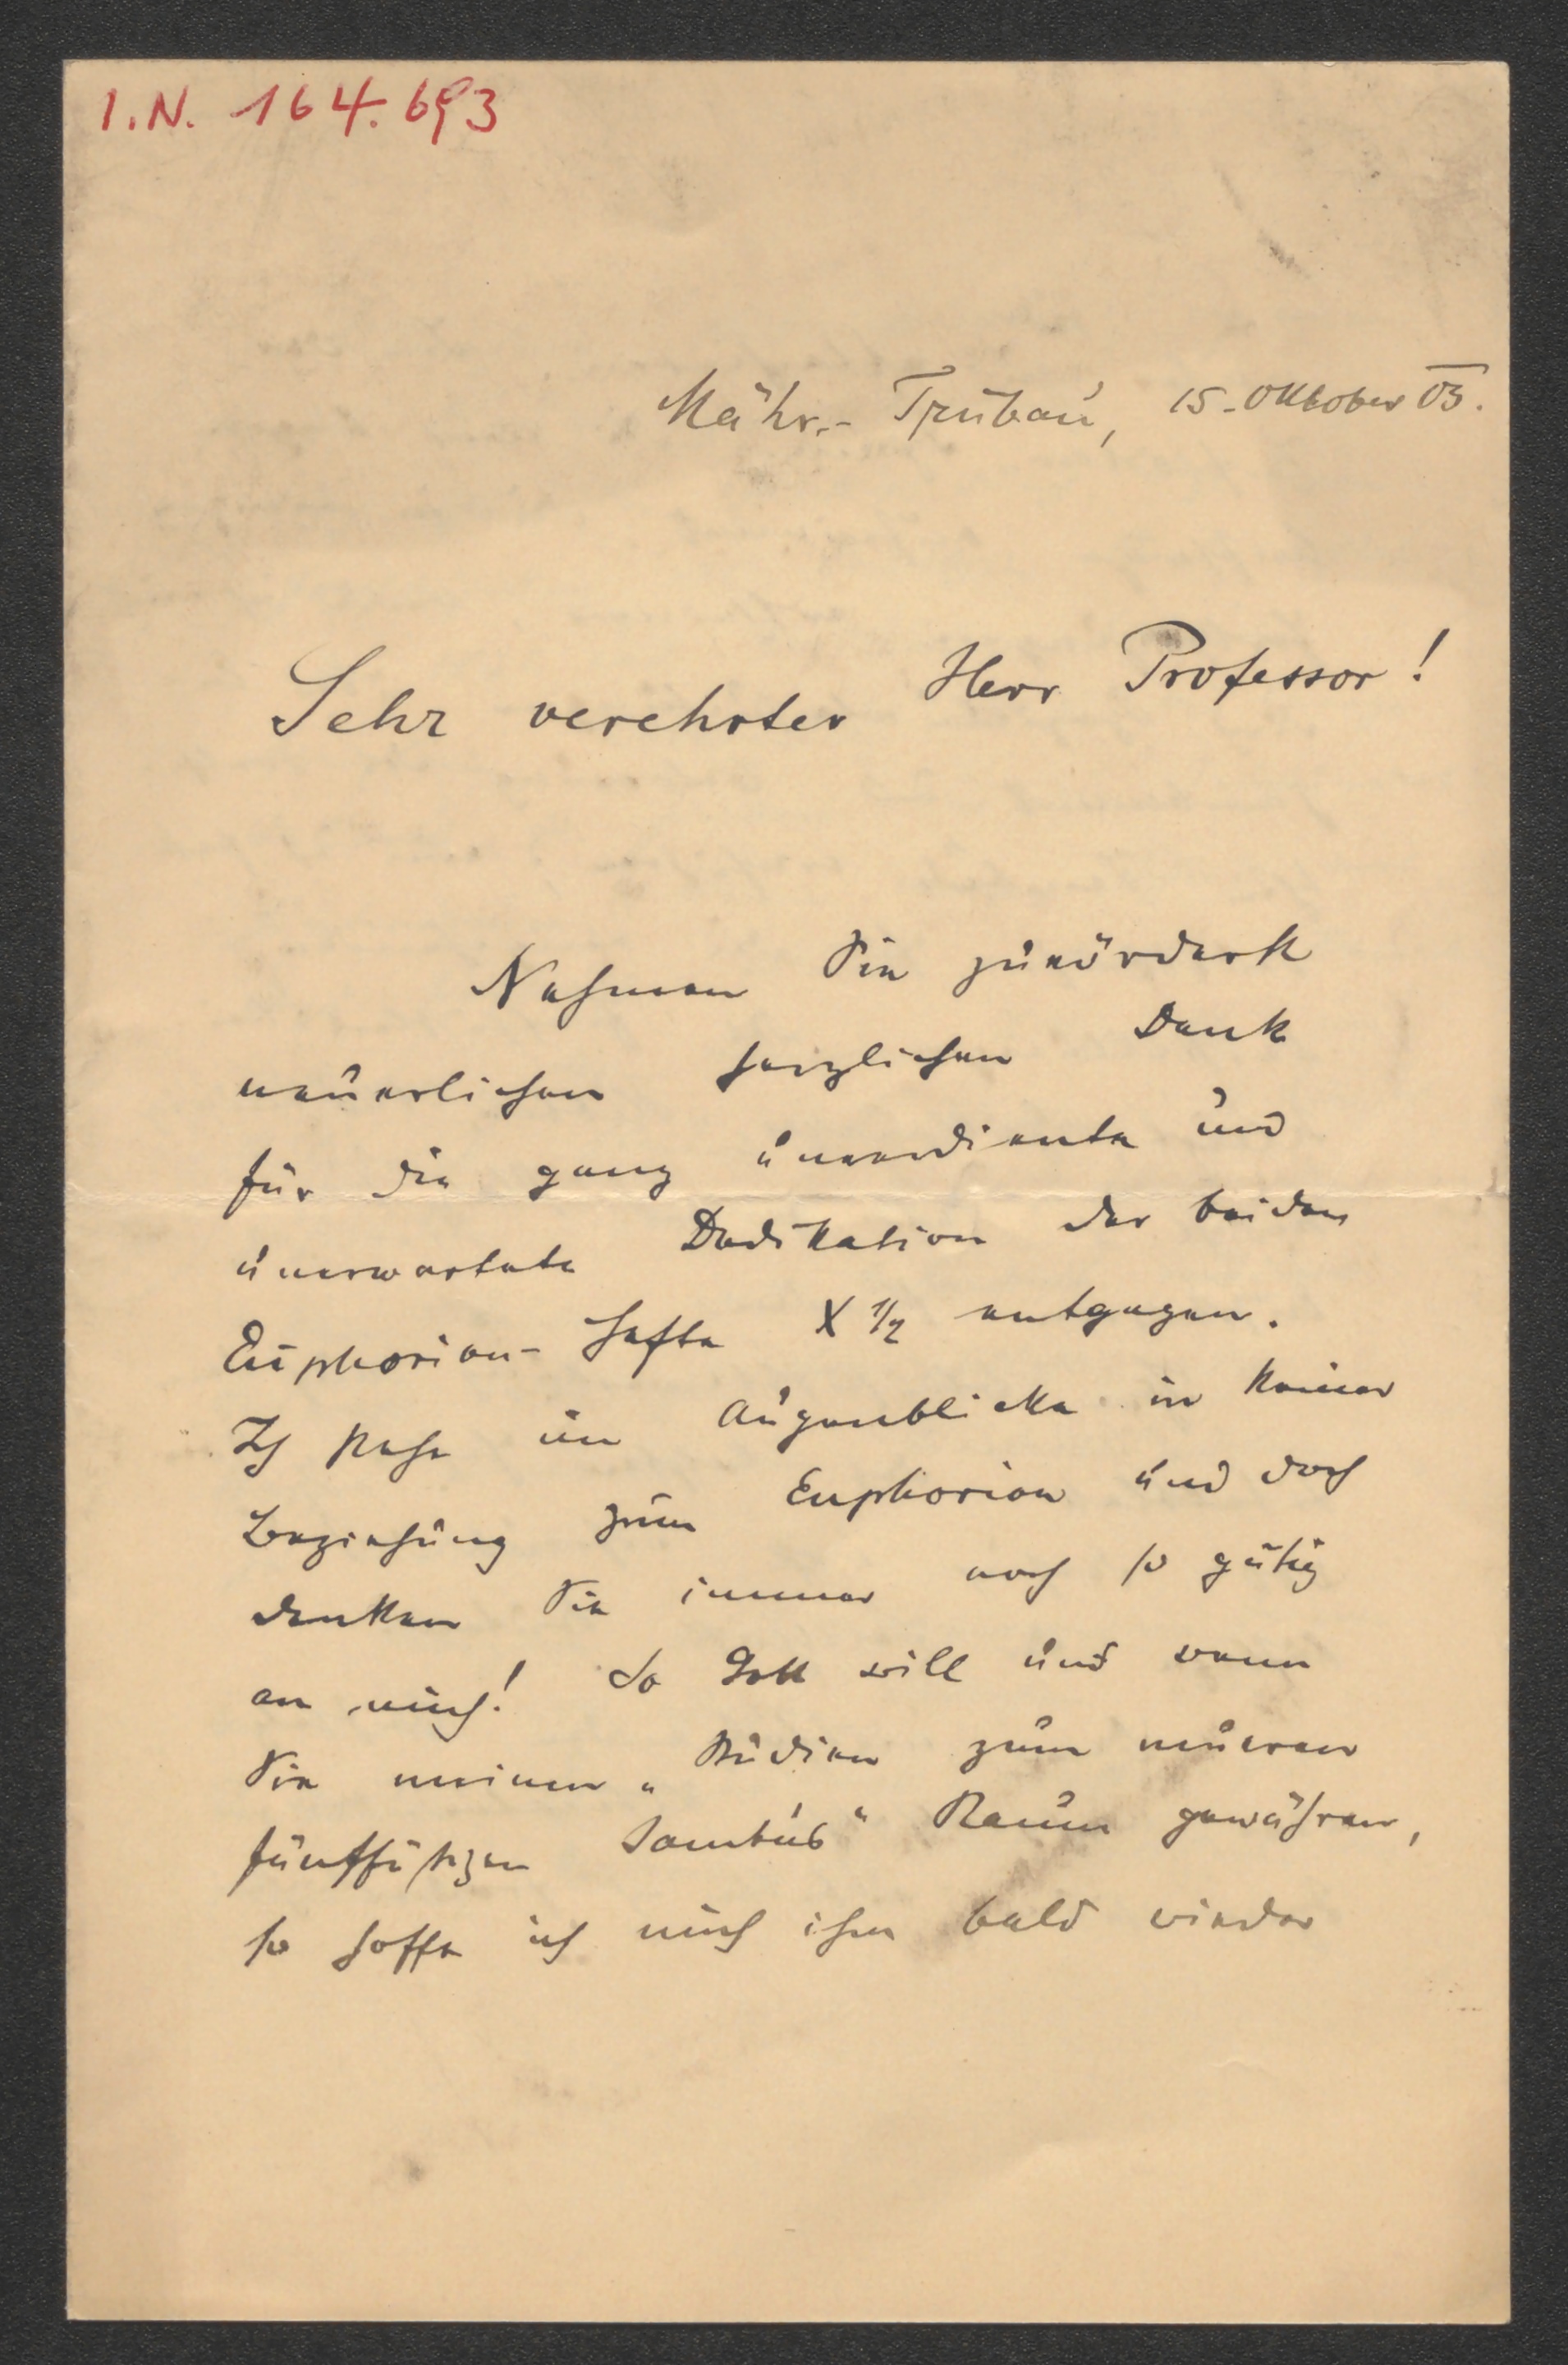 I.N. 164.693
Mähr.-Trübau, 15. Oktober 03.
Sehr verehrter Herr Professor!
Nehmen Sie zuvörderst
neuerlichen herzlichen Dank
für die ganz unverdiente und
unerwartete Dedikation der beiden
Euphorion-Hefte X 1/2 entgegen.
Ich stehe im Augenblicke in keiner
Beziehung zum Euphorion und doch
denken Sie immer noch so gütig
an mich! So Gott will und wenn
Sie meinen „Studien zum neueren
fünffüßigen Jambus“ Raum gewähren,
so hoffe ich mich ihm bald wieder